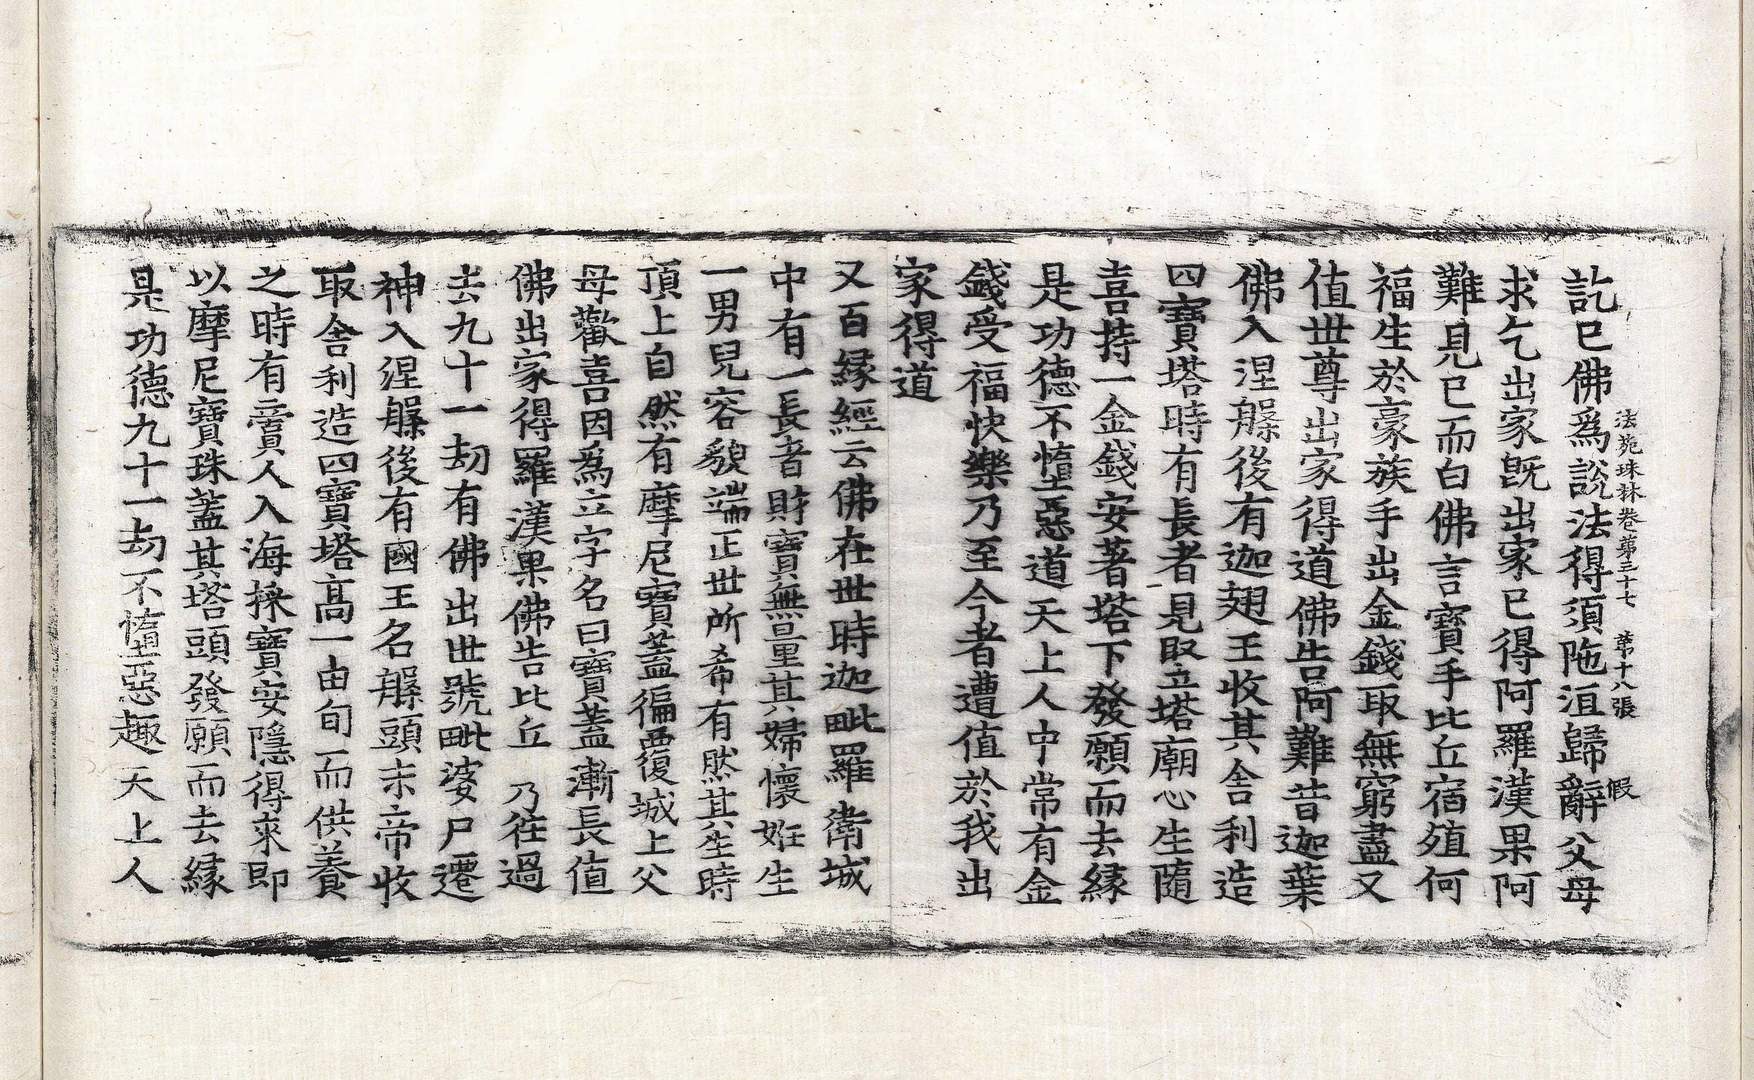 法苑珠林卷第三十七 第十八張 假
訖已佛爲說法得須陁洹歸辭父母
求乞出家旣出家已得阿羅漢果阿
難見已而白佛言寶手比丘宿殖何
福生於豪族手出金錢取無窮盡又
值世尊出家得道佛告阿難昔迦葉
佛入涅槃後有迦翅王收其舍利造
四寶塔時有長者見取立塔廟心生隨
喜持一金錢安著塔下發願而去緣
是功德不墮惡道天上人中常有金
錢受福快樂乃至今者遭值於我出
家得道
又百緣經云佛在世時迦毗羅衛城
中有一長者財寶無量其婦懷妊生
一男兒容貌端正世所希有然其生時
頂上自然有摩尼寶蓋徧覆城上父
母歡喜因爲立字名曰寶蓋漸長值
佛出家得羅漢果佛告比丘 乃往過
去九十一劫有佛出世號毗婆尸遷
神入涅槃後有國王名槃頭末帝收
取舍利造四寶塔高一由旬而供養
之時有賣人入海採寶安隱得來即
以摩尼寶珠蓋其塔頭發願而去緣
是功德九十一劫不墮惡趣天上人